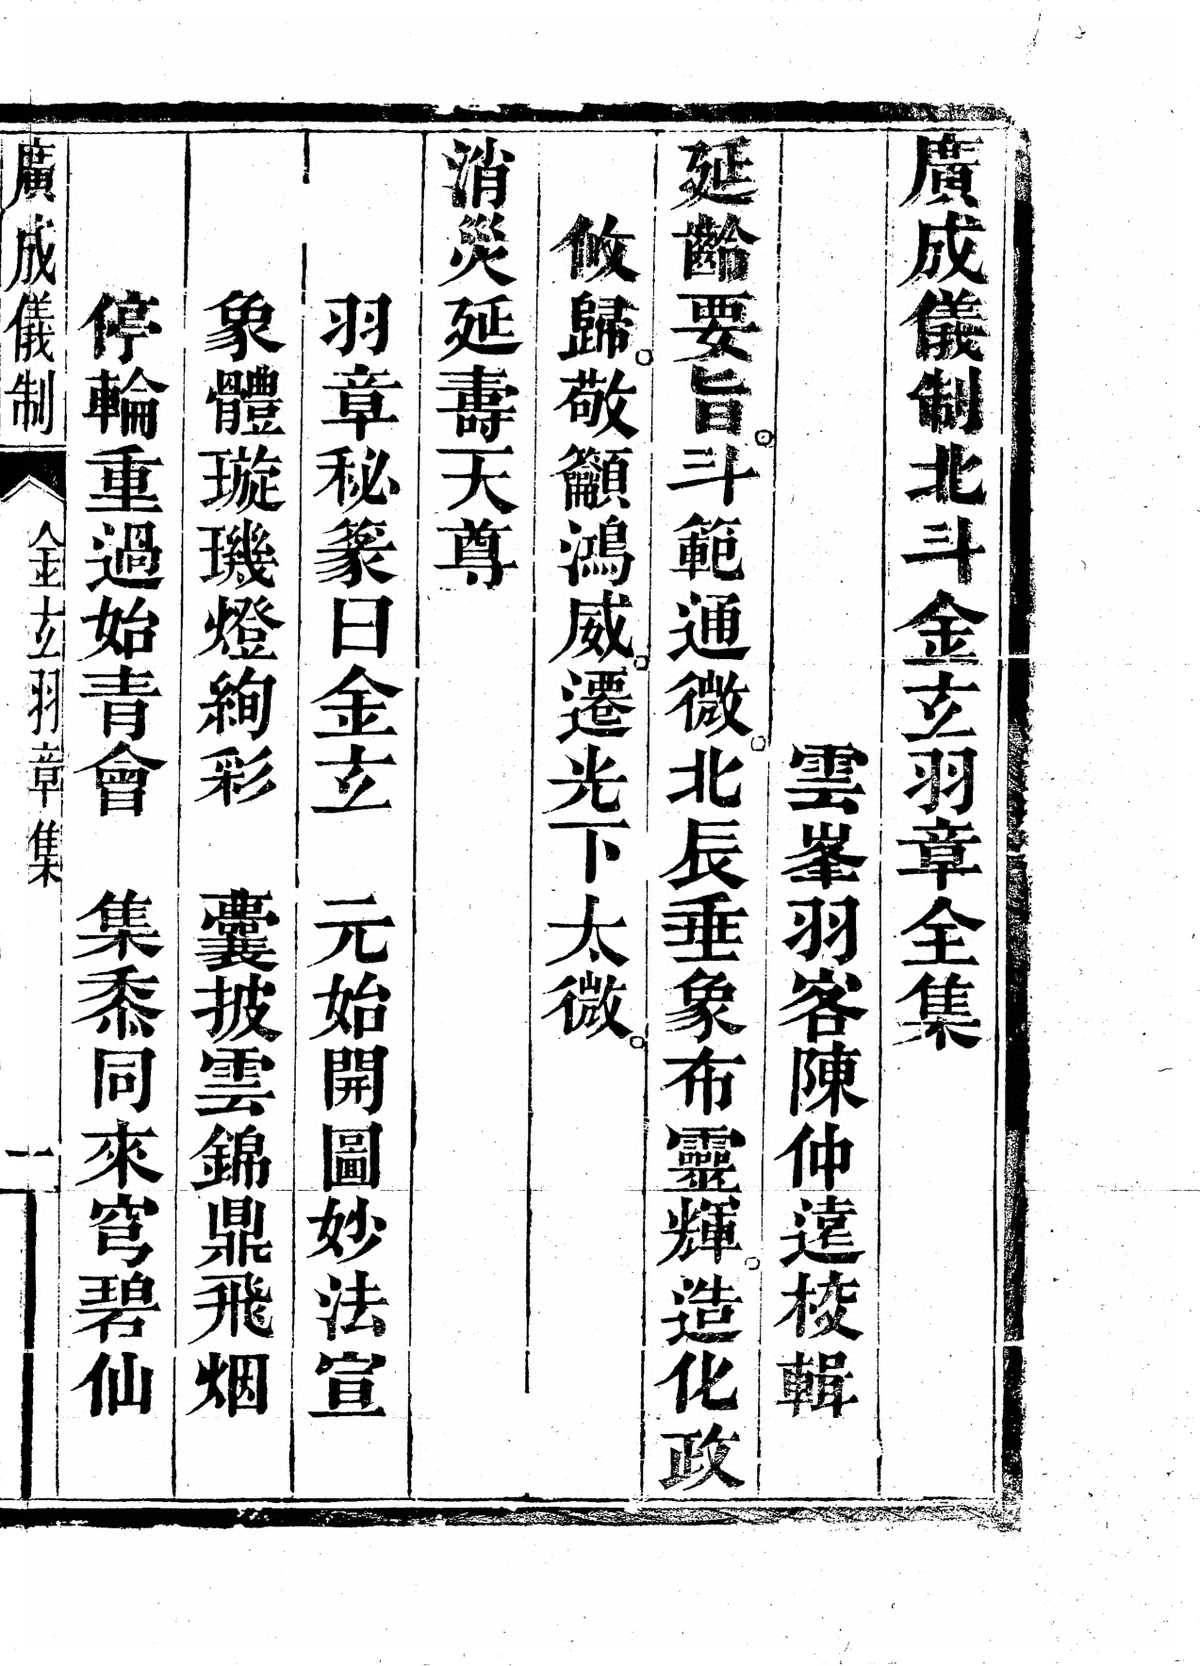 廣成儀制北斗金玄羽章全集
雲峯羽客陳仲遠校輯
延齡要旨。斗範通微。北辰垂象布靈輝。造化政
攸歸。敬籲鴻威。遷光下太微。
消災延壽天尊
羽章秘篆曰金玄　元始開圖妙法宣
象體璇璣燈絢彩　囊披雲錦鼎飛烟
停輪重過始青會　集黍同來穹碧仙
廣成儀制　金玄羽章集　一